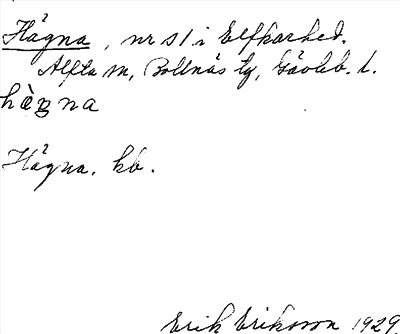 Hägna, nr s1 i Elfkarhed.
Alfta sn, Bollnäs tg, Gävleb. l.
hàgna
Hägna. kb.
Erik Eriksson 1929.